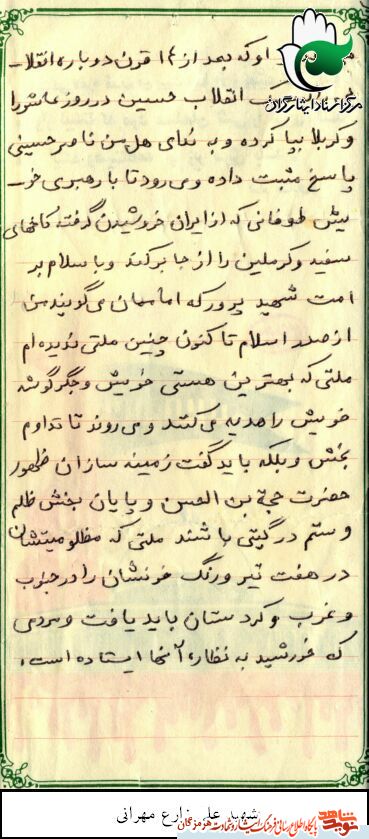 او که بعد از ۱۴ قرن دوباره انقلا-
انقلاب حسین در روز عاشورا
و کربلا بپا کرده و به ندای هل من ناصر حسینی
پاسخ مثبت داده و می رود تا با رهبری خو-
یش طوفانی که از ایران خروشیدن گرفته کاخهای
سفید و کرملین را از جا بر کند و با سلام بر
امت شهید پرور که امام‌مان می گویند من
از صدر اسلام تا کنون چنین ملتی ندیده ام
ملتی که بهترین هستی خویش و جگر گوشه
خویش را هدیه می کنند و می روند تا تداوم
بخش و بلکه باید گفت زمینه سازان ظهور
حضرت حجة بن الحسن و پایان بخش ظلم
و ستم در گیتی باشند ملتی که مظلومیتشان
در هفت تیر و رنگ خونشان را در جنوب
و غرب و کردستان باید یافت و مردمی
که خورشید به نظاره آنها ایستاده است.
مرکز اسناد ایثارگران
شهید علی زارع مهرانی
نوید شاهد
پایگاه اطلاع رسانی فرهنگ ایثار و شهادت هرمزگان